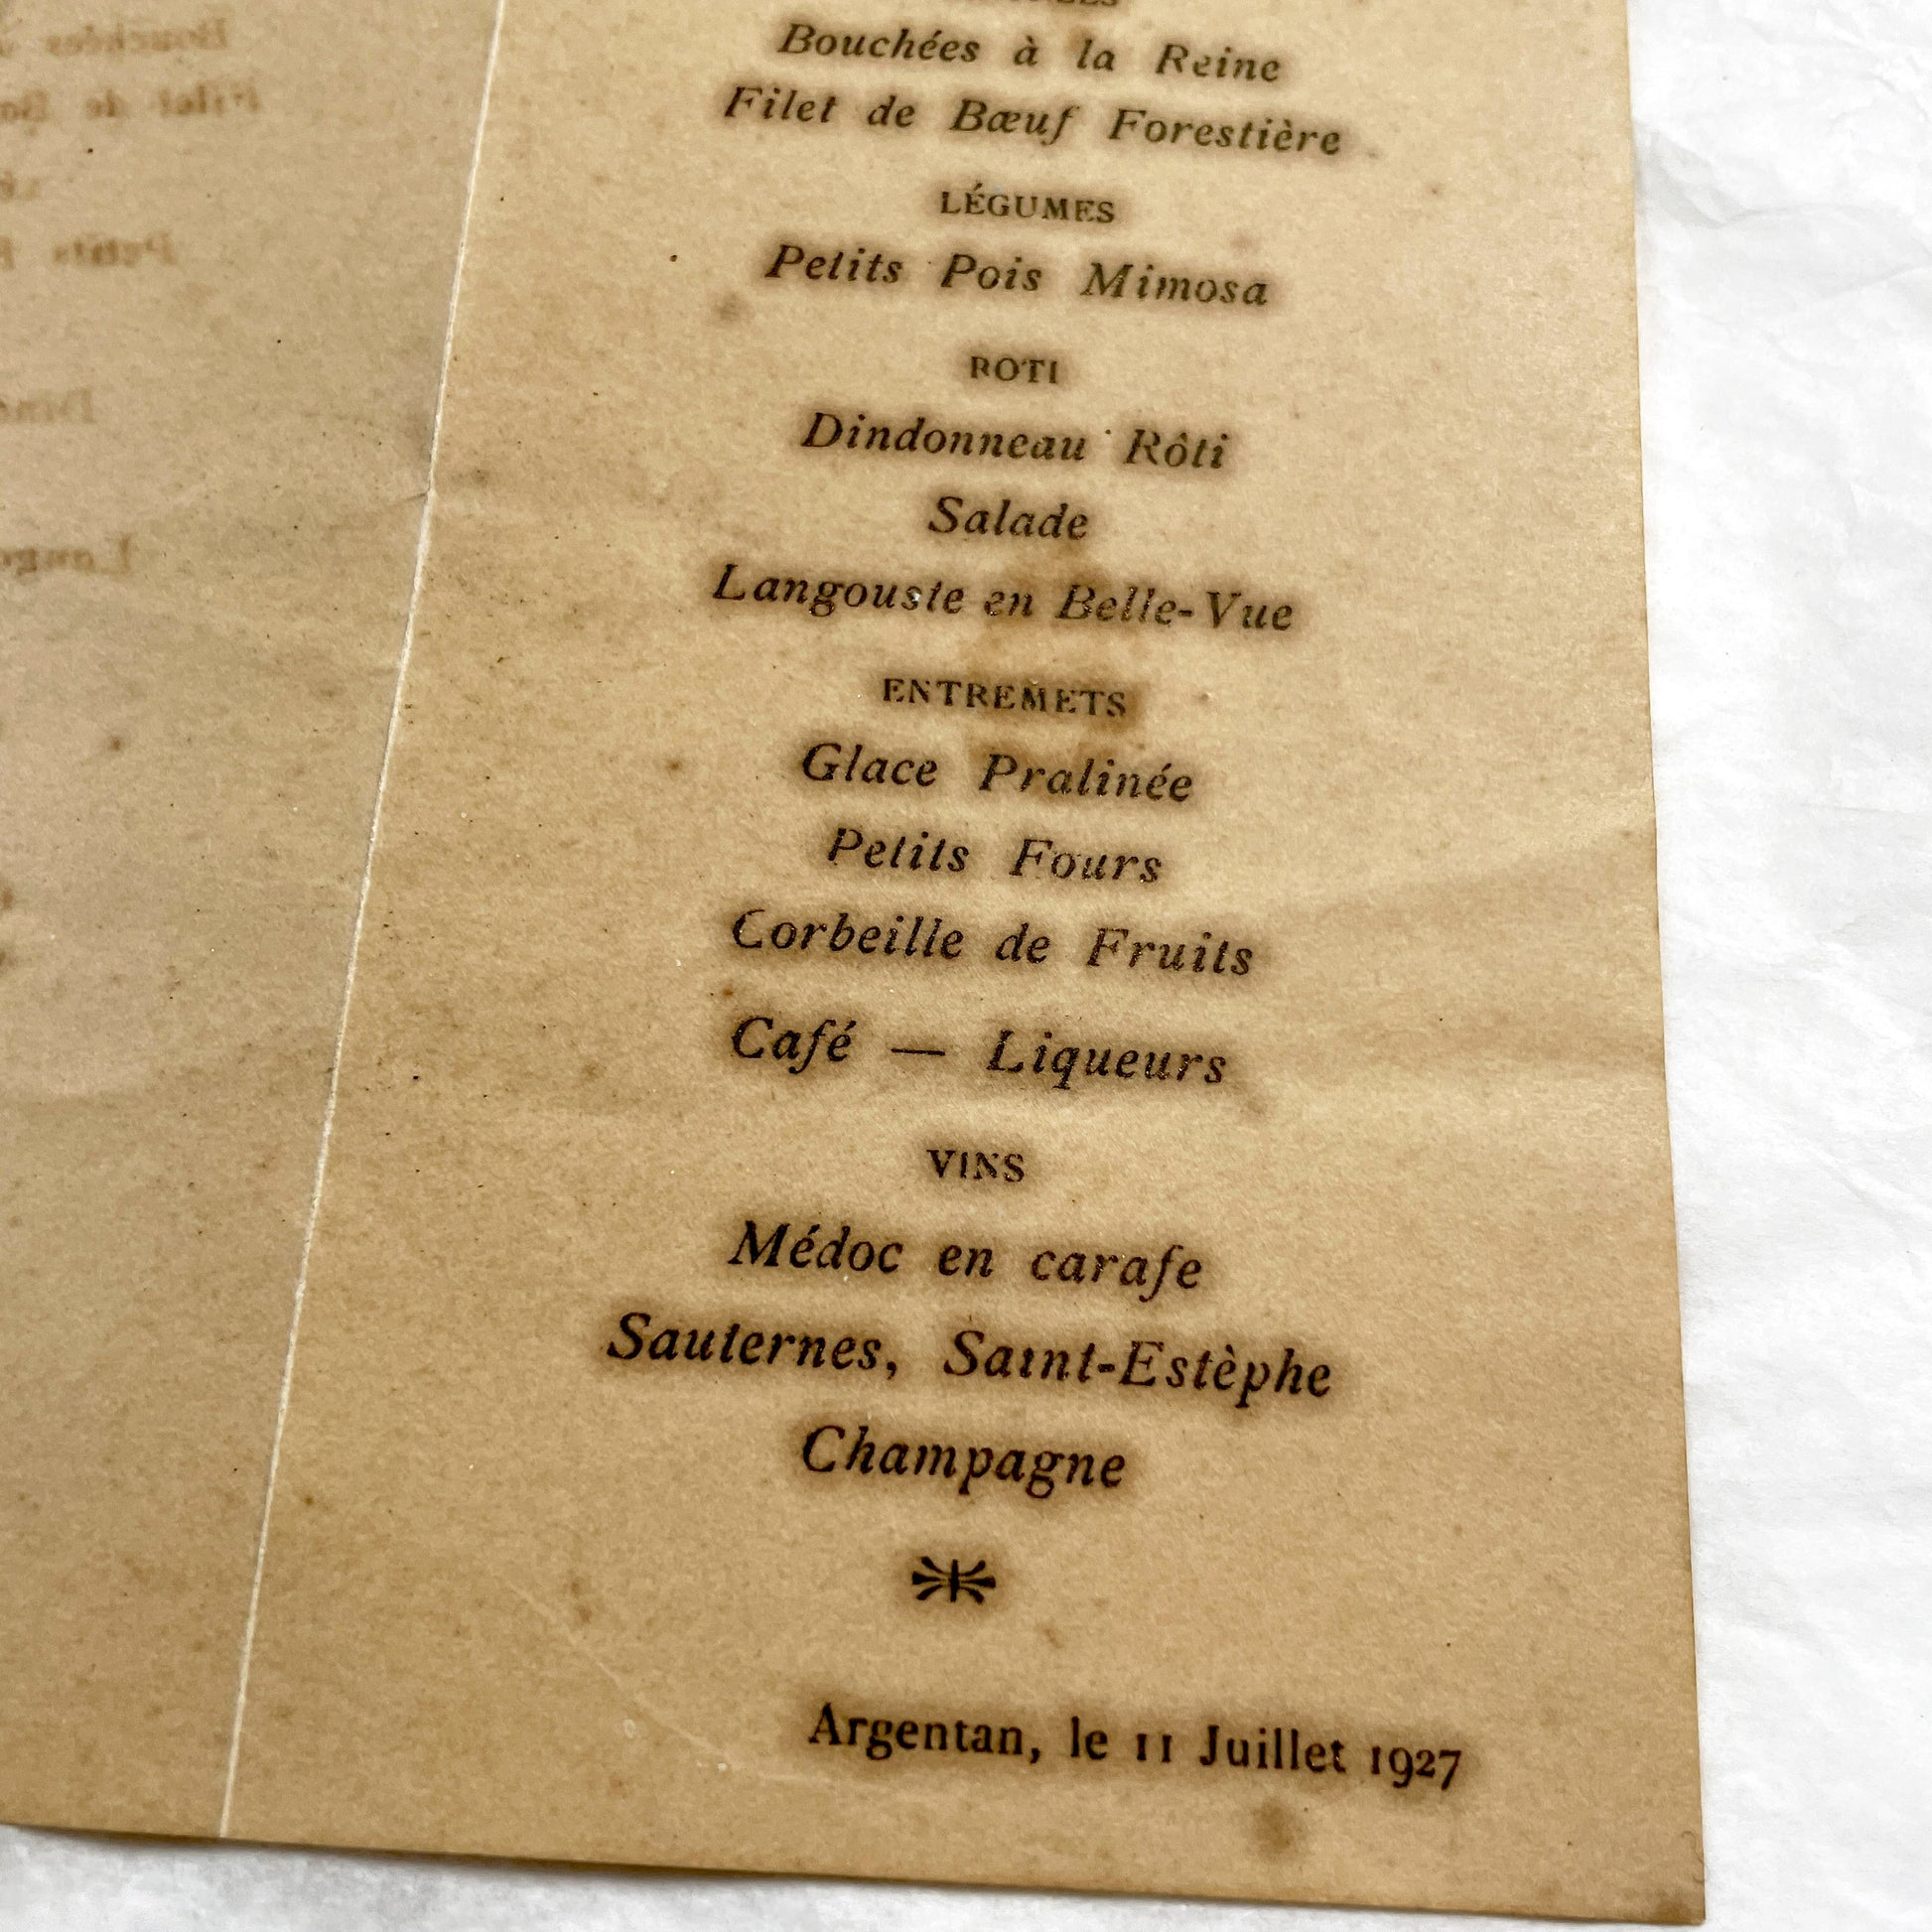 Bouchées à la Reine
Filet de Bœuf Forestière
LÉGUMES
Petits Pois Mimosa
ROTI
Dindonneau Rôti
Salade
Langouste en Belle-Vue
ENTREMETS
Glace Pralinée
Petits Fours
Corbeille de Fruits
Café — Liqueurs
VINS
Médoc en carafe
Sauternes, Saint-Estèphe
Champagne
Argentan, le 11 Juillet 1927